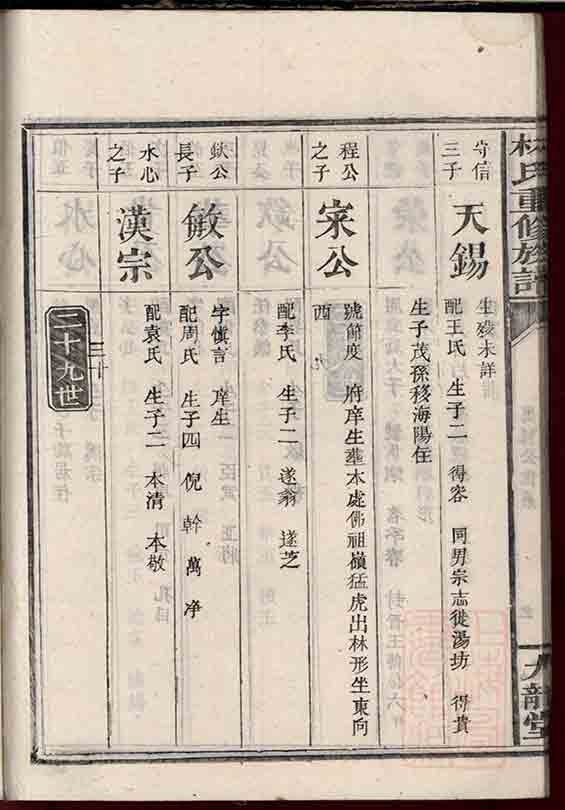 林氏重修族譜
九龍堂
守信三子
天錫
生歿未詳
配王氏 生子二 得容 同男宗志徙湯坊 得貴
生子茂孫移海陽住
程公之子
宋公
號節度 府庠生葬本處佛祖嶺猛虎出林形坐東向
西
配李氏 生子二 遂翁 遂芝
欽公長子
敏公
字慎言 庠生
配周氏 生子四 倪 幹 萬 净
水心之子
漢宗
配袁氏 生子二 本清 本敬
三十
二十九世